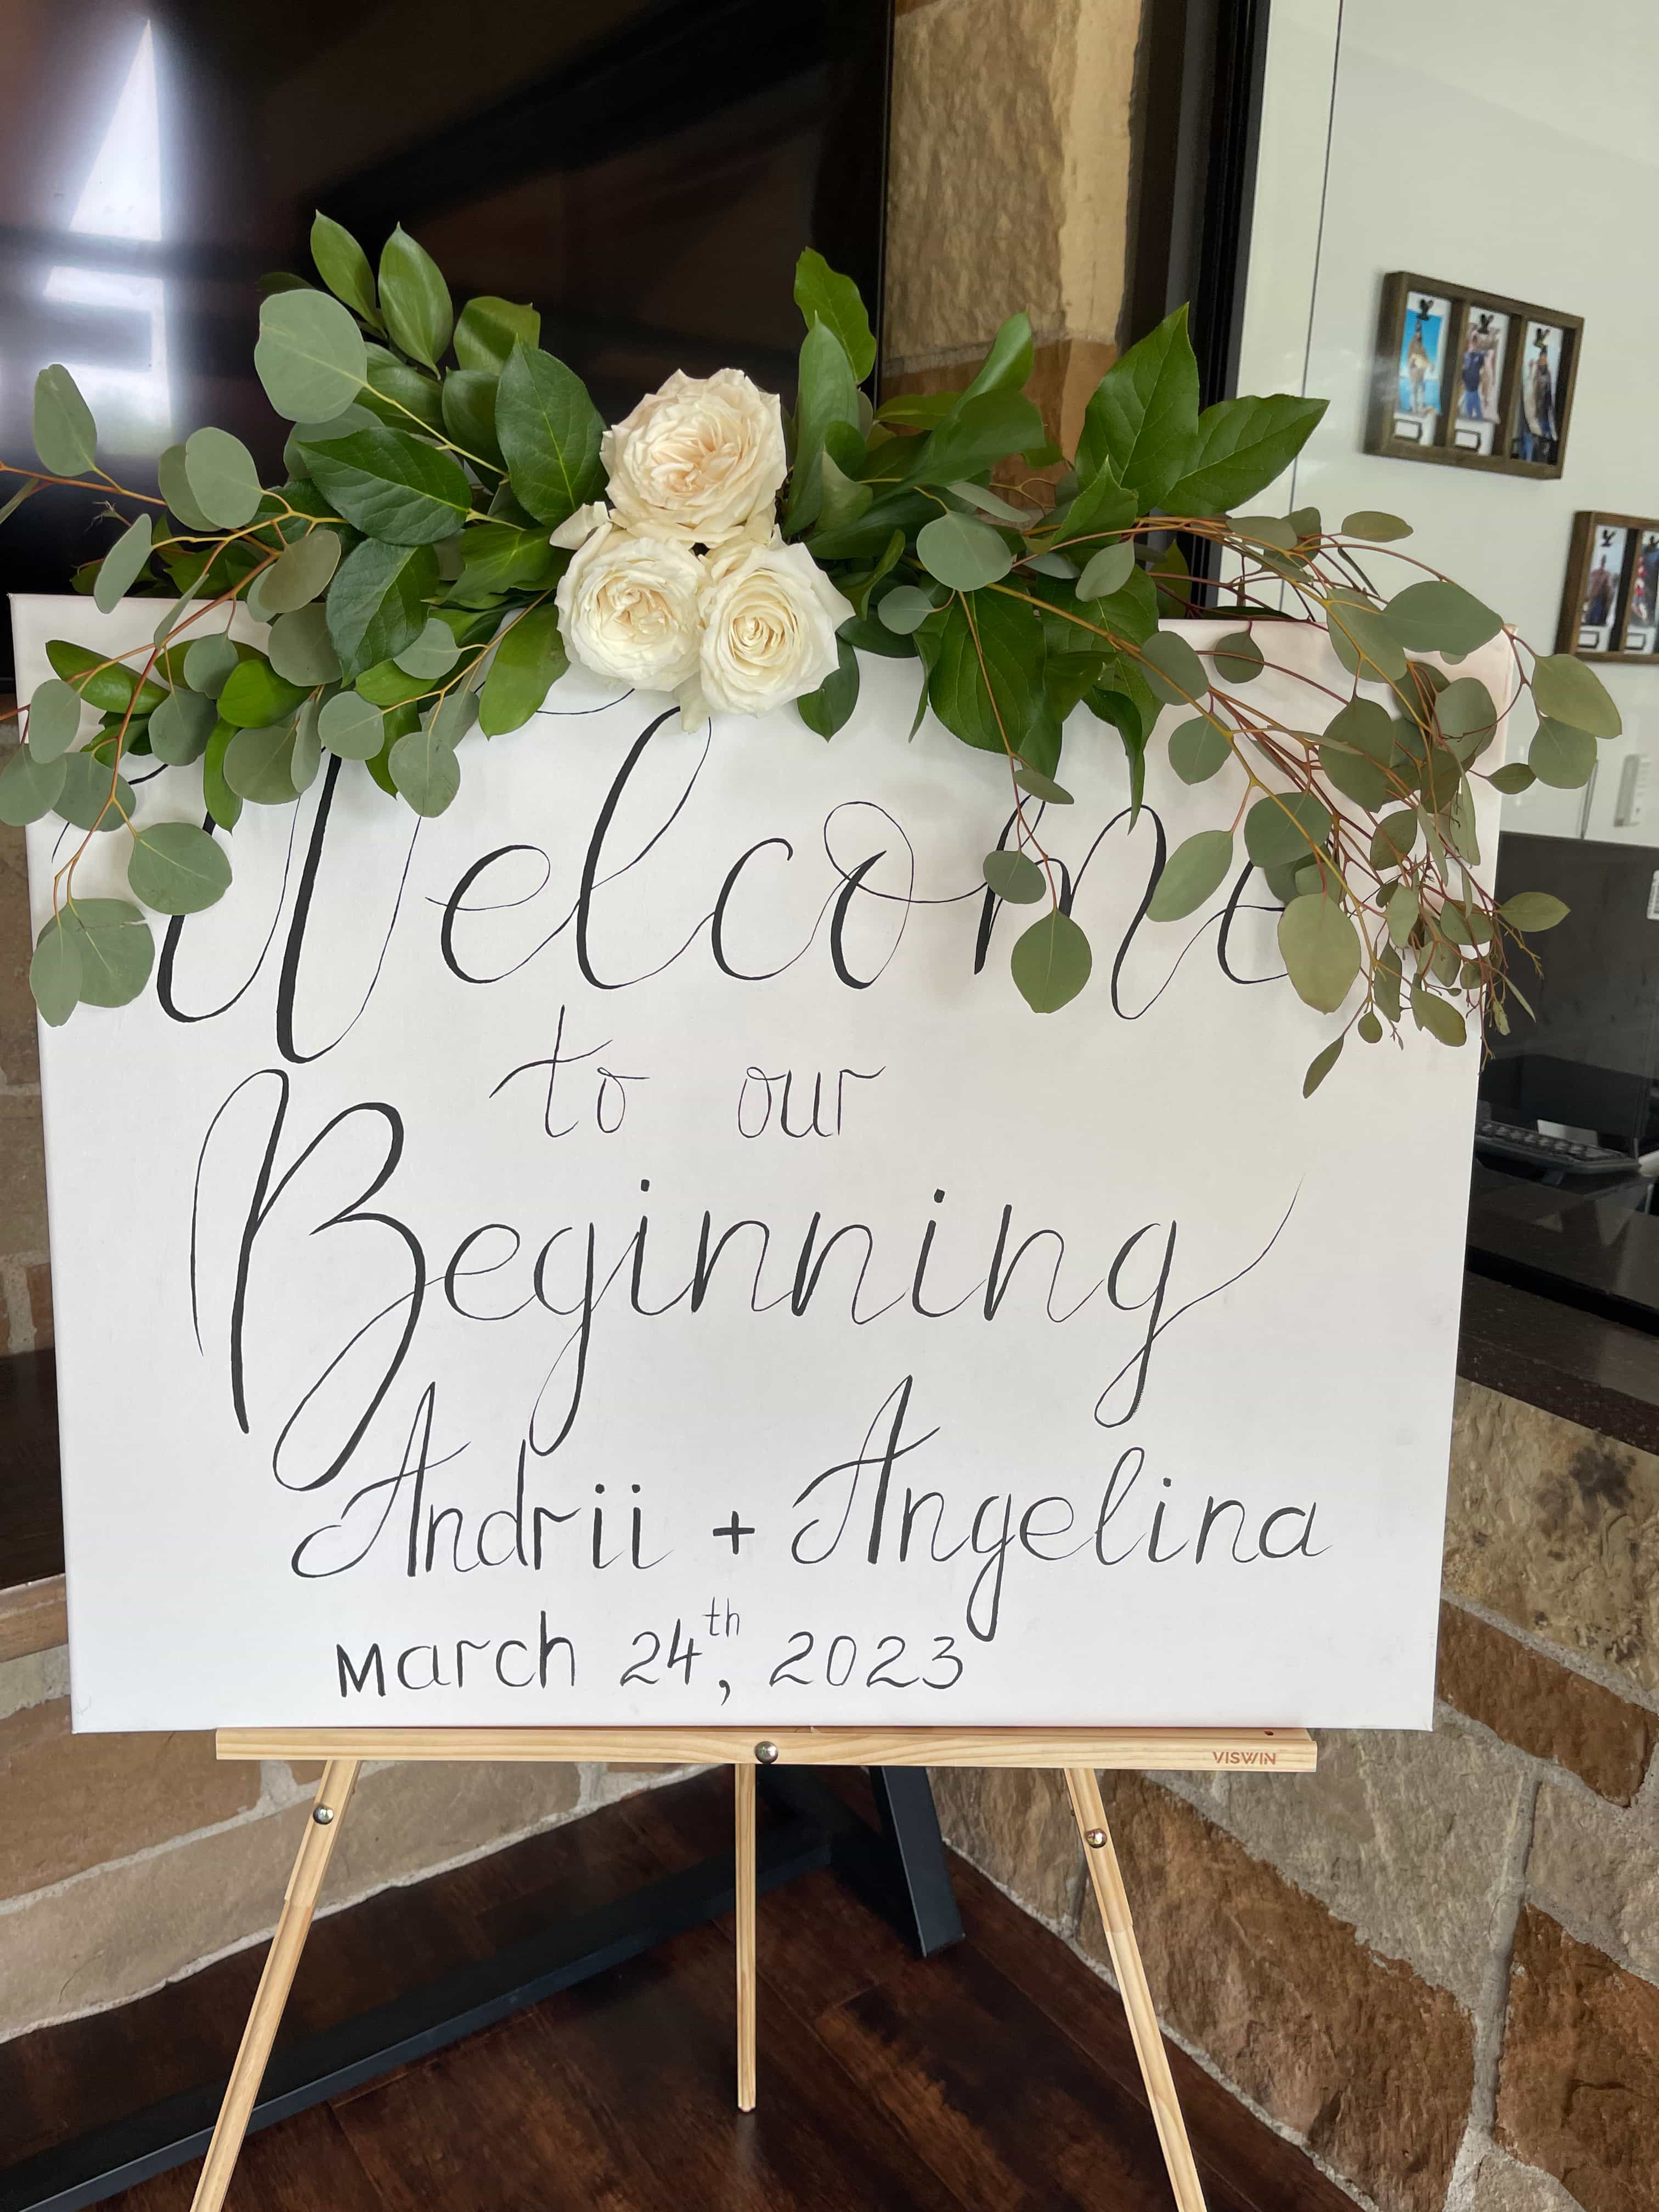 Welcome
to our
Beginning
Andrii + Angelina
March 24th, 2023
VISWIN